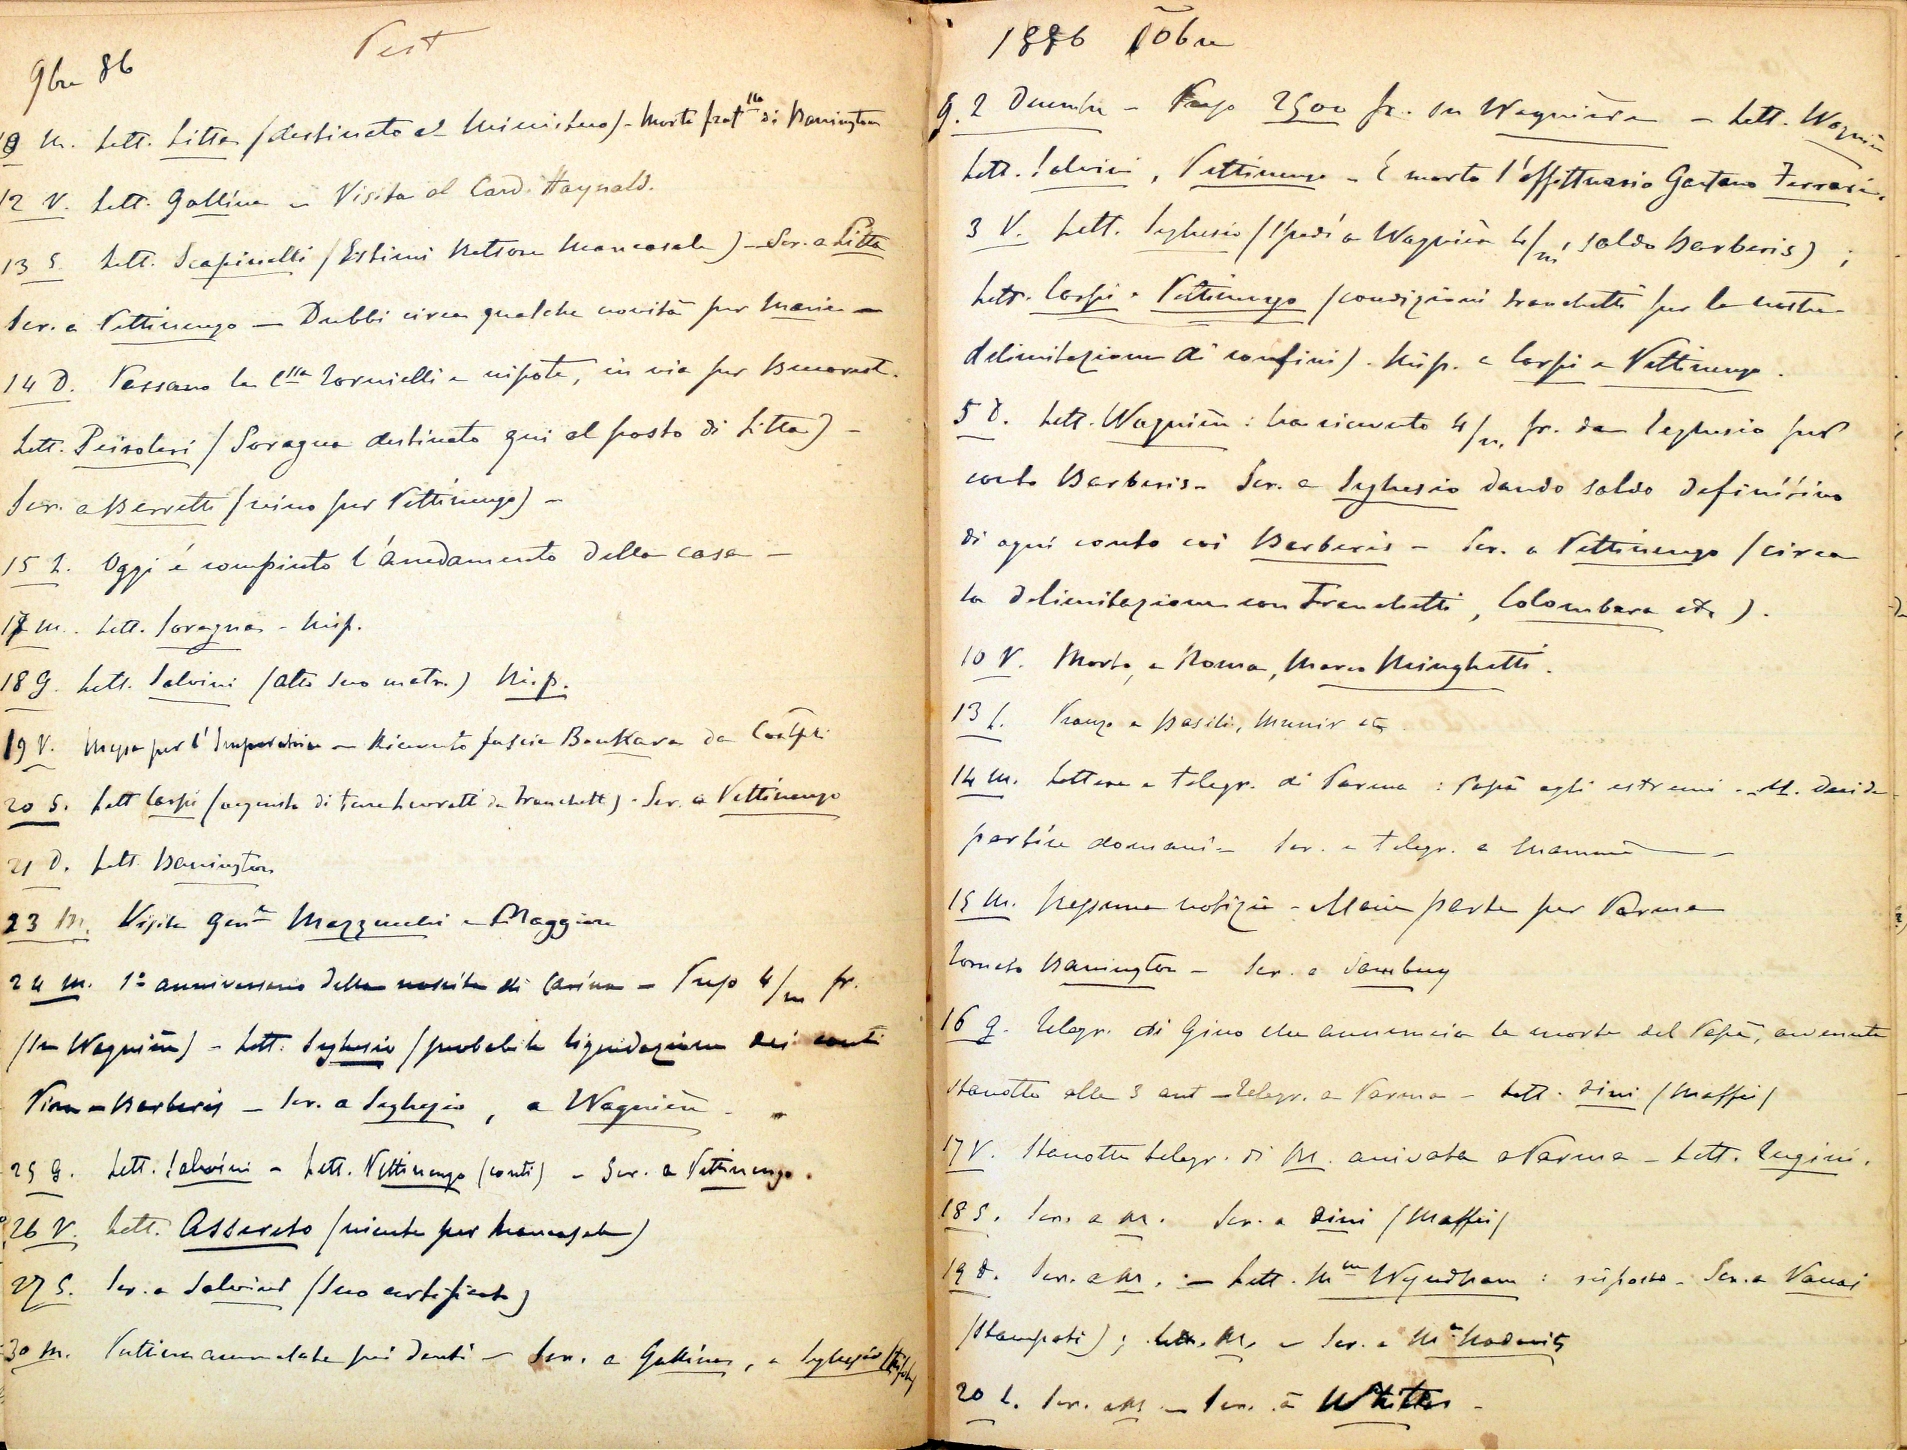 Pest
9bre 86
M. Lett. Litta (destinato al Ministero) - Morte frat.llo di Bavington
12 V. Lett. Gallina - Visita al Card. Haynald.
13 S. Lett. Scapinelli (Estimi Rettore Mancasale) - Scr. a Litta
Scr. a Pettinengo - Dubbi circa qualche novità per Maria -
14 D. Passano la C.ssa Tornielli e nipote, in via per Bucarest.
Lett. Peiroleri (Soragna destinato qui al posto di Litta) -
Scr. a Berretti (vino per Pettinengo) -
15 L. Oggi è compiuto l'arredamento della casa -
17 M. Lett. Soragna - Risp.
18 G. Lett. Salvini (atto suo matr.) Risp.
19 V. Messa per l'Imperatrice - Ricevuto fascia Boukara da Costpli
20 S. Lett. Carpi (acquisto di terre da Franchetti) - Scr. a Pettinengo
21 D. Lett. Bavington
23 M. Visita Gen.le Mazzucchi e Maggiore
24 M. 1° anniversario della nascita di Carina - Preso 4/m fr.
(su Wagnière) - Lett. Seghesio (probabile liquidazione dei conti
Barberis - Scr. a Seghesio, a Wagnière -
25 G. Lett. Salvini - Lett. Pettinengo (conti) - Scr. a Pettinengo.
26 V. Lett. Assereto (niente per Mancasale)
27 S. Scr. a Salvini (suo certificato)
30 M. ammalata pei denti - Scr. a Gallina, a Seghesio
1886 10bre
G. 2 Dicembre - Preso 2500 fr. su Wagnière - Lett. Wagnière
Lett. Salvini, Pettinengo - È morto l'affittuario Gaetano Ferrari.
3 V. Lett. Seghesio (spedì a Wagnière 4/m, saldo Barberis);
Lett. Carpi e Pettinengo (condizioni Franchetti per la nostra
delimitazione di confini). Risp. a Carpi e Pettinengo.
5 D. Lett. Wagnière: ha ricevuto 4/m fr. da Seghesio per
conto Barberis - Scr. a Seghesio dando saldo definitivo
di ogni conto coi Barberis - Scr. a Pettinengo (circa
la delimitazione con Franchetti, Colombara etc).
10 V. Morto, a Roma, Marco Minghetti.
13 L. Pranzo a Basili, Munir etc
14 M. Lettere e telegr. di Parma: Papà agli estremi - M. decide
partire domani - Scr. e telegr. a Mammà -
15 M. Nessuna notizia - Maria parte per Parma
Tornato Bavington - Scr. a Sambuy
16 G. Telegr. di Gino che annuncia la morte del Papà, avvenuta
stanotte alle 3 ant - Telegr. a Parma - Lett. Dini (Maffei)
17 V. Stanotte telegr. di M. arrivata a Parma - Lett. Zugini.
18 S. Scr. a M. Scr. a Dini (Maffei)
19 D. Scr. a M. - Lett. M.me Wyndham: risposto - Scr. a
(stampati); Lett. M. - Scr. a
20 L. Scr. a M - Scr. a